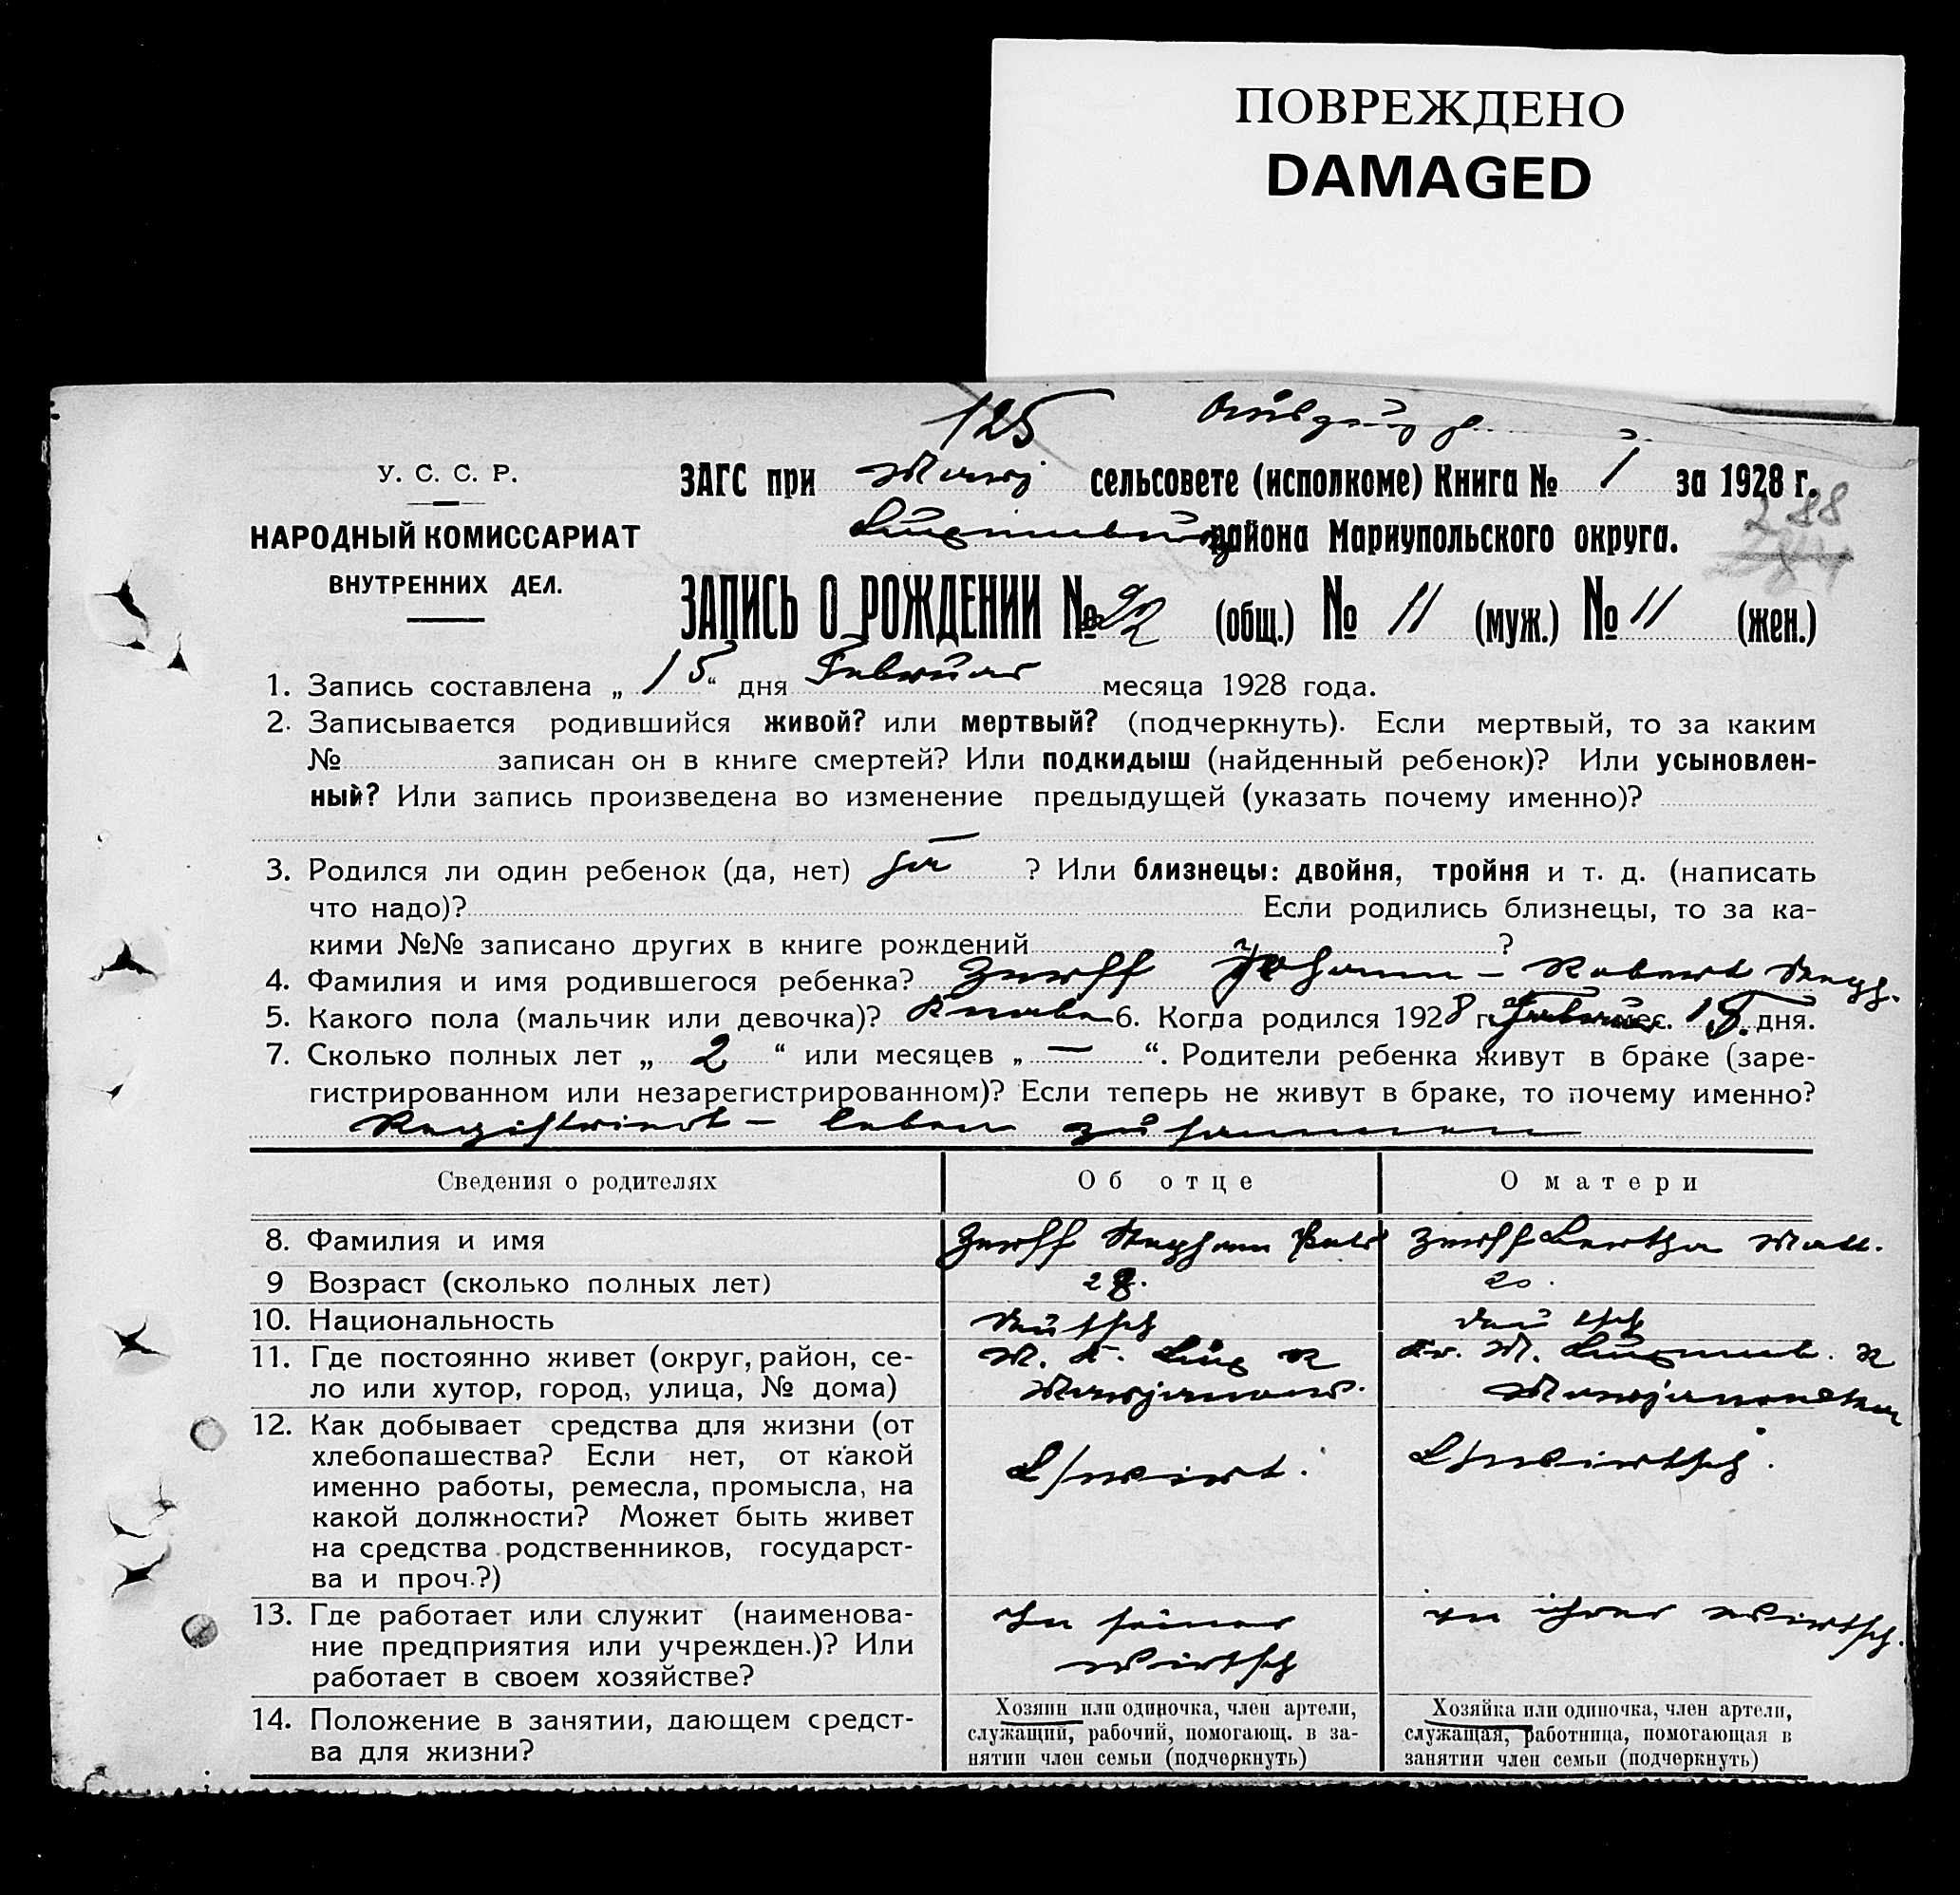 ПОВРЕЖДЕНО
DAMAGED
125
У. С. С. Р.
НАРОДНЫЙ КОМИССАРИАТ
ВНУТРЕННИХ ДЕЛ.
ЗАГС при Marj сельсовете (исполкоме) Книга № 1 за 1928 г.
288
района Мариупольского округа.
ЗАПИСЬ О РОЖДЕНИИ № 22 (общ.) № 11 (муж.) № 11 (жен.)
1. Запись составлена „ 15 “ дня Februar месяца 1928 года.
2. Записывается родившийся живой? или мертвый? (подчеркнуть). Если мертвый, то за каким
№ записан он в книге смертей? Или подкидыш (найденный ребенок)? Или усыновлен-
ный? Или запись произведена во изменение предыдущей (указать почему именно)?
3. Родился ли один ребенок (да, нет) ja ? Или близнецы: двойня, тройня и т. д. (написать
что надо)? Если родились близнецы, то за ка-
кими №№ записано других в книге рождений ?
4. Фамилия и имя родившегося ребенка? Zerff Johann - Robert Steph.
5. Какого пола (мальчик или девочка)? Knabe 6. Когда родился 1928 г. Februar мес. 15. дня.
7. Сколько полных лет „ 2 “ или месяцев „ — “. Родители ребенка живут в браке (заре-
гистрированном или незарегистрированном)? Если теперь не живут в браке, то почему именно?
Registriert - leben zusammen
Сведения о родителях Об отце О матери
8. Фамилия и имя Zerff Stephan Zerff Bertha
9 Возраст (сколько полных лет) 28. 20.
10. Национальность Deutsch deutsch
11. Где постоянно живет (округ, район, се-
ло или хутор, город, улица, № дома)
M. K. Lux R
Marjanow.
Kr. M. Luxemb. R
12. Как добывает средства для жизни (от
хлебопашества? Если нет, от какой
именно работы, ремесла, промысла, на
какой должности? Может быть живет
на средства родственников, государст-
ва и проч.?)
L/wirt.
L/wirtsch.
13. Где работает или служит (наименова-
ние предприятия или учрежден.)? Или
работает в своем хозяйстве?
In seiner
wirtsch
in ihrer wirtsch.
14. Положение в занятии, дающем средст-
ва для жизни?
Хозяин или одиночка, член артели,
служащий, рабочий, помогающ. в за-
нятии член семьи (подчеркнуть)
Хозяйка или одиночка, член артели,
служащая, работница, помогающая в
занятии член семьи (подчеркнуть)